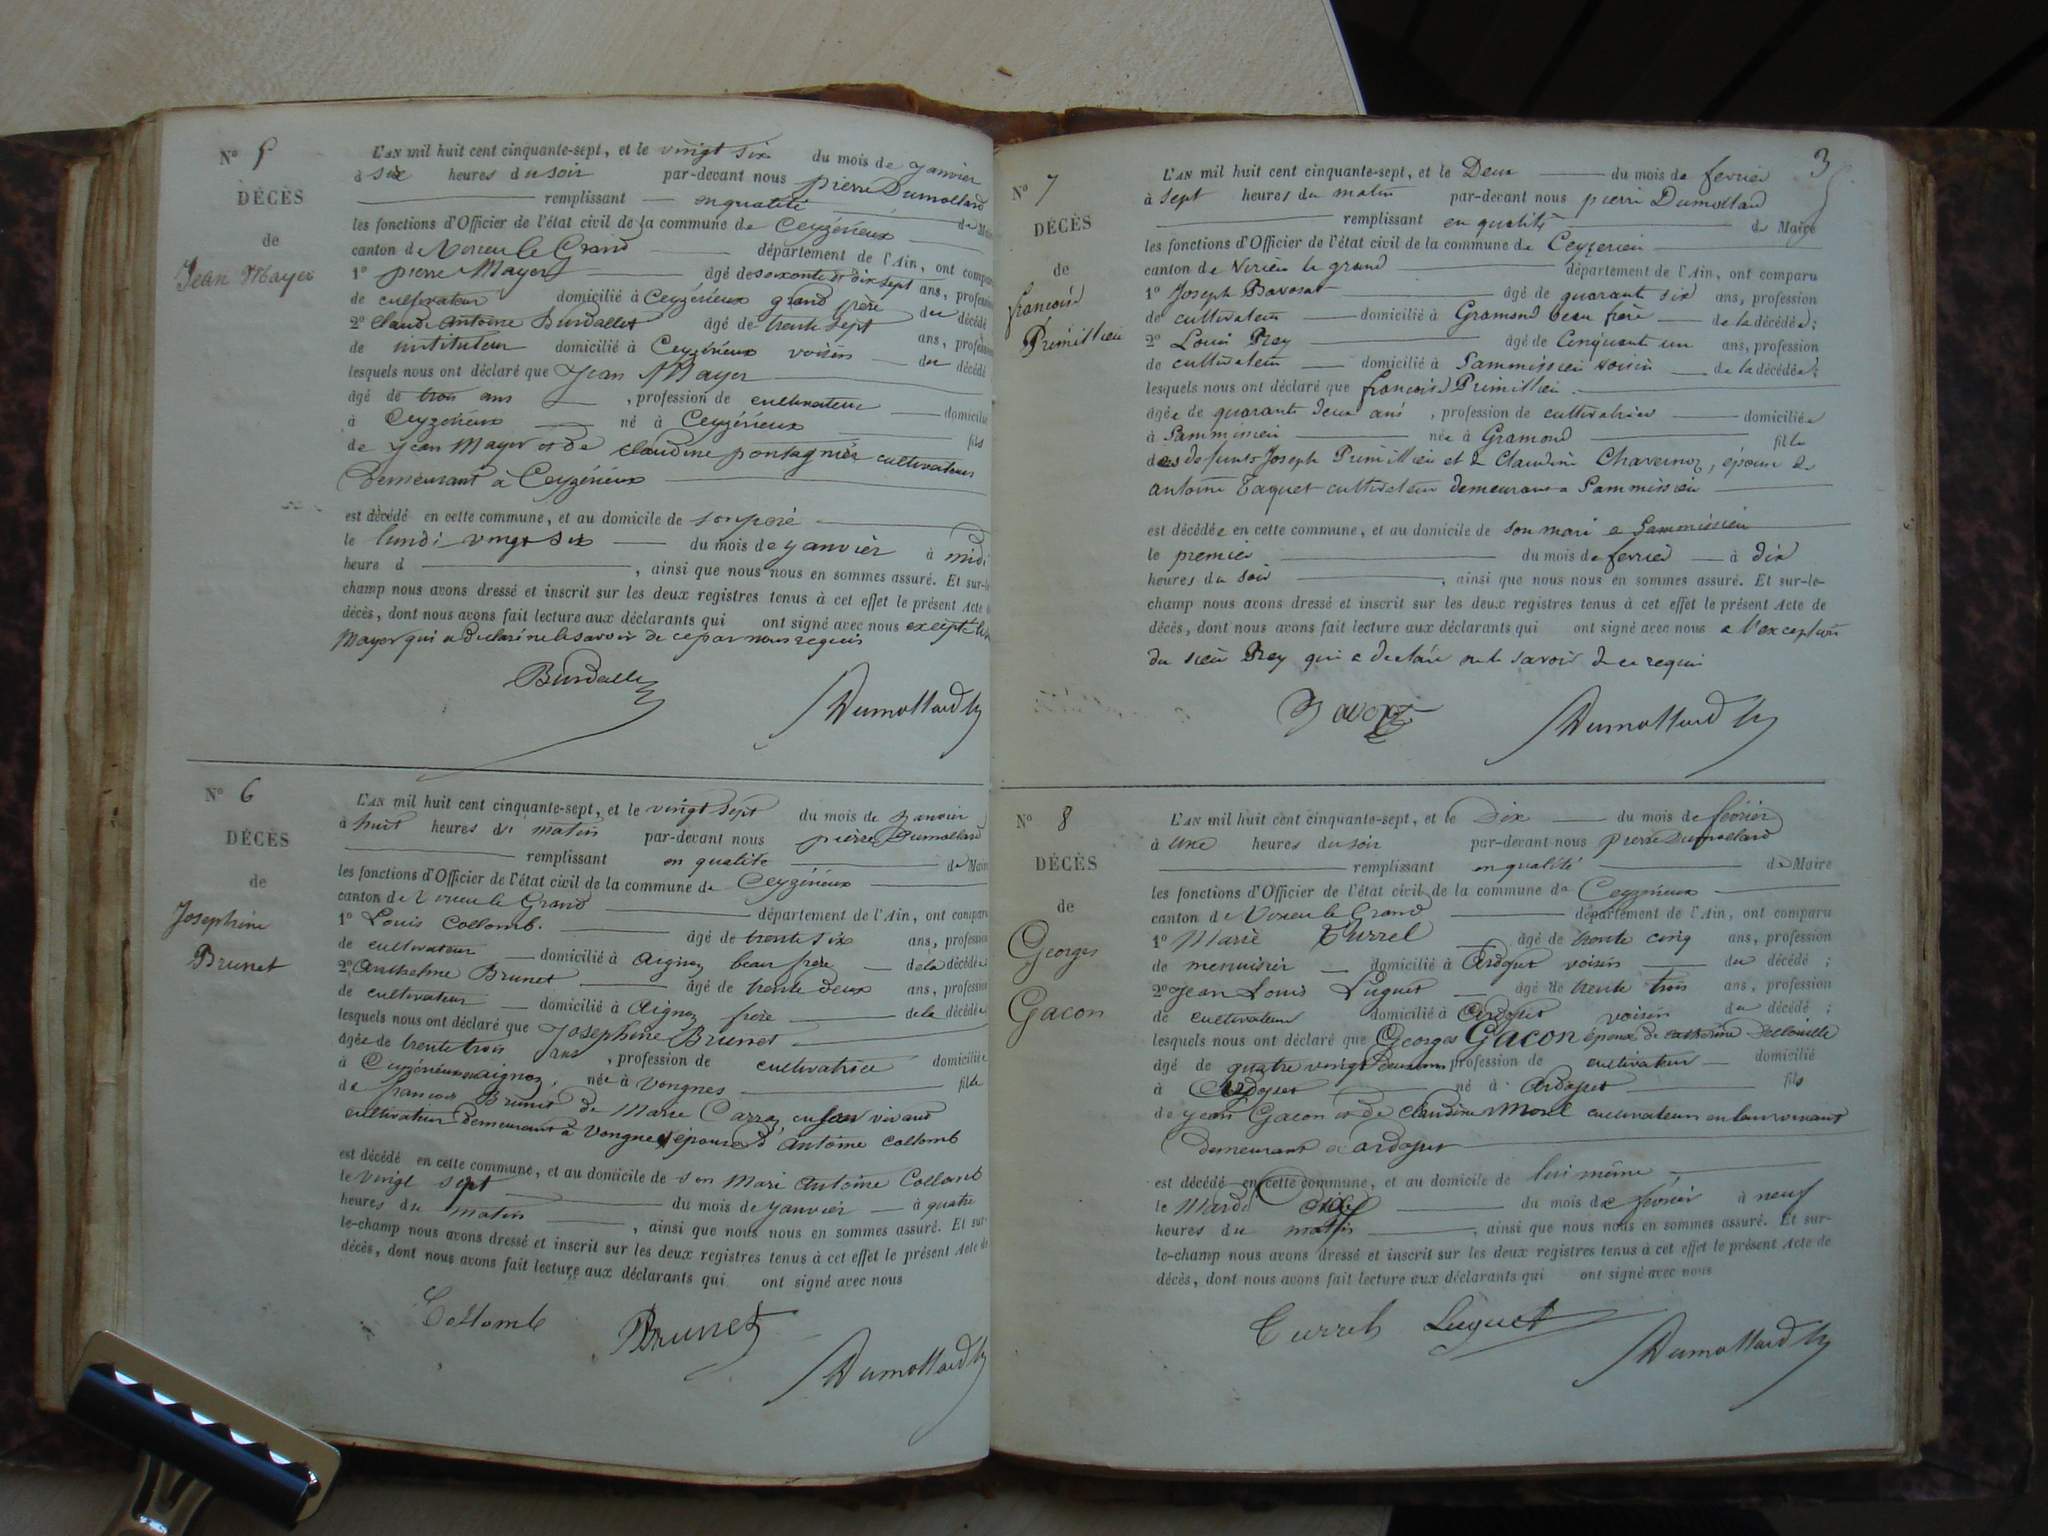 N° 5
DÉCÈS
de
Jean Mayer
L'AN mil huit cent cinquante-sept, et le vingt six du mois de janvier
à six heures du soir par-devant nous pierre Dumollard
remplissant en qualité de Maire
les fonctions d'Officier de l'état civil de la commune de Ceyzérieux
canton de Virieu le Grand département de l'Ain, ont comparu
1° pierre Mayer âgé de soixante et dix sept ans, profession
de cultivateur domicilié à Ceyzérieux grand père du décédé
2° Claude Antoine Burdallet âgé de trente sept ans, profession
de instituteur domicilié à Ceyzérieux voisin du décédé
lesquels nous ont déclaré que Jean Mayer
âgé de trois ans, profession de cultivateur domicilié
à Ceyzérieux né à Ceyzérieux fils
de Jean Mayer et de Claudine pontagnier cultivateurs
Demeurant à Ceyzérieux
est décédé en cette commune, et au domicile de son père
le lundi vingt six du mois de janvier à midi
heure d , ainsi que nous nous en sommes assuré. Et sur-le-
champ nous avons dressé et inscrit sur les deux registres tenus à cet effet le présent Acte de
décès, dont nous avons fait lecture aux déclarants qui ont signé avec nous excepté
Mayer qui a déclaré ne le savoir de ce par nous requis
Burdallet
Dumollard
N° 6
DÉCÈS
de
Josephine
Brunet
L'AN mil huit cent cinquante-sept, et le vingt sept du mois de janvier
à huit heures du matin par-devant nous pierre Dumollard
remplissant en qualité de Maire
les fonctions d'Officier de l'état civil de la commune de Ceyzérieux
canton de Virieu le Grand département de l'Ain, ont comparu
1° Louis Collomb. âgé de trente six ans, profession
de cultivateur domicilié à Aignoz beau frère de la décédée
2° Anthelme Brunet âgé de trente deux ans, profession
de cultivateur domicilié à Aignoz frère de la décédée
lesquels nous ont déclaré que Josephine Brunet
âgée de trente trois ans, profession de cultivatrice domiciliée
à Ceyzérieux aignoz, née à Vongnes fille
de françois Brunet de Marie Carraz, en leur vivant
cultivateur demeurant à Vongnes épouse d Antoine Collomb
est décédé en cette commune, et au domicile de son Mari Antoine Collomb
le vingt sept du mois de janvier à quatre
heures du matin, ainsi que nous nous en sommes assuré. Et sur-
le-champ nous avons dressé et inscrit sur les deux registres tenus à cet effet le présent Acte de
décès, dont nous avons fait lecture aux déclarants qui ont signé avec nous
Collomb
Brunet
Dumollard
3
N° 7
DÉCÈS
de
françoise
Primillieu
L'AN mil huit cent cinquante-sept, et le Deux du mois de fevrier
à sept heures du matin par-devant nous pierre Dumollard
remplissant en qualité de Maire
les fonctions d'Officier de l'état civil de la commune de Ceyzerieu
canton de Virieu le grand département de l'Ain, ont comparu
1° Joseph Bavozat âgé de quarante six ans, profession
de cultivateur domicilié à Gramond beau frère de la décédée;
2° Louis Rey âgé de Cinquante un ans, profession
de cultivateur domicilié à Sammissieu voisin de la décédée;
lesquels nous ont déclaré que françoise Primillieu
âgée de quarante deux ans, profession de cultivatrice domiciliée
à Sammissieu née à Gramond fille
des defunts Joseph Primillieu et de Claudine Chavernoz, épouse de
antoine Taquet cultivateur demeurant a Sammissieu
est décédée en cette commune, et au domicile de son mari a Sammissieu
le premier du mois de fevrier à dix
heures du soir, ainsi que nous nous en sommes assuré. Et sur-le-
champ nous avons dressé et inscrit sur les deux registres tenus à cet effet le présent Acte de
décès, dont nous avons fait lecture aux déclarants qui ont signé avec nous a l'exception
du sieur Rey qui a declaré ne le savoir de ce requis
Dumollard
N° 8
DÉCÈS
de
Georges
Gacon
L'AN mil huit cent cinquante-sept, et le Dix du mois de février
à Une heures du soir par-devant nous pierre Dumollard
remplissant en qualité de Maire
les fonctions d'Officier de l'état civil de la commune de Ceyzérieux
canton de Virieu le Grand département de l'Ain, ont comparu
1° Marie Currel âgé de trente cinq ans, profession
de menuisier domicilié à Ardosset voisin du décédé;
2° Jean Louis Luquet âgé de trente trois ans, profession
de cultivateur domicilié à Ardosset voisin du décédé;
lesquels nous ont déclaré que Georges Gacon époux de Catherine
âgé de quatre vingt deux ans profession de cultivateur domicilié
à Ardosset né à Ardosset fils
de Jean Gacon et de Claudine Morel cultivateurs en leur vivant
Demeurant a ardosset
est décédé en cette commune, et au domicile de lui même
le Mardi dix du mois de février à neuf
heures du matin, ainsi que nous nous en sommes assuré. Et sur-
le-champ nous avons dressé et inscrit sur les deux registres tenus à cet effet le présent Acte de
décès, dont nous avons fait lecture aux déclarants qui ont signé avec nous
Currel Luquet
Dumollard